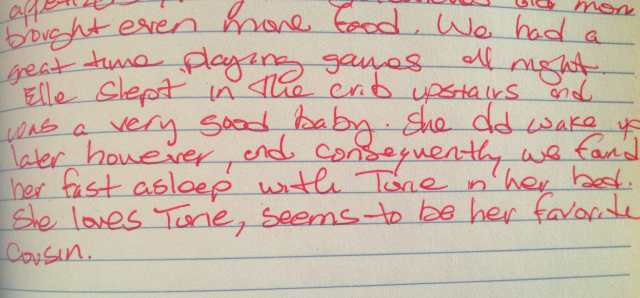 brought even more food. We had a
great time playing games all night.
Elle slept in the crib upstairs and
was a very good baby. She did wake up
later however, and consequently we found
her fast asleep with Tune in her bed.
She loves Tune, seems to be her favorite
cousin.